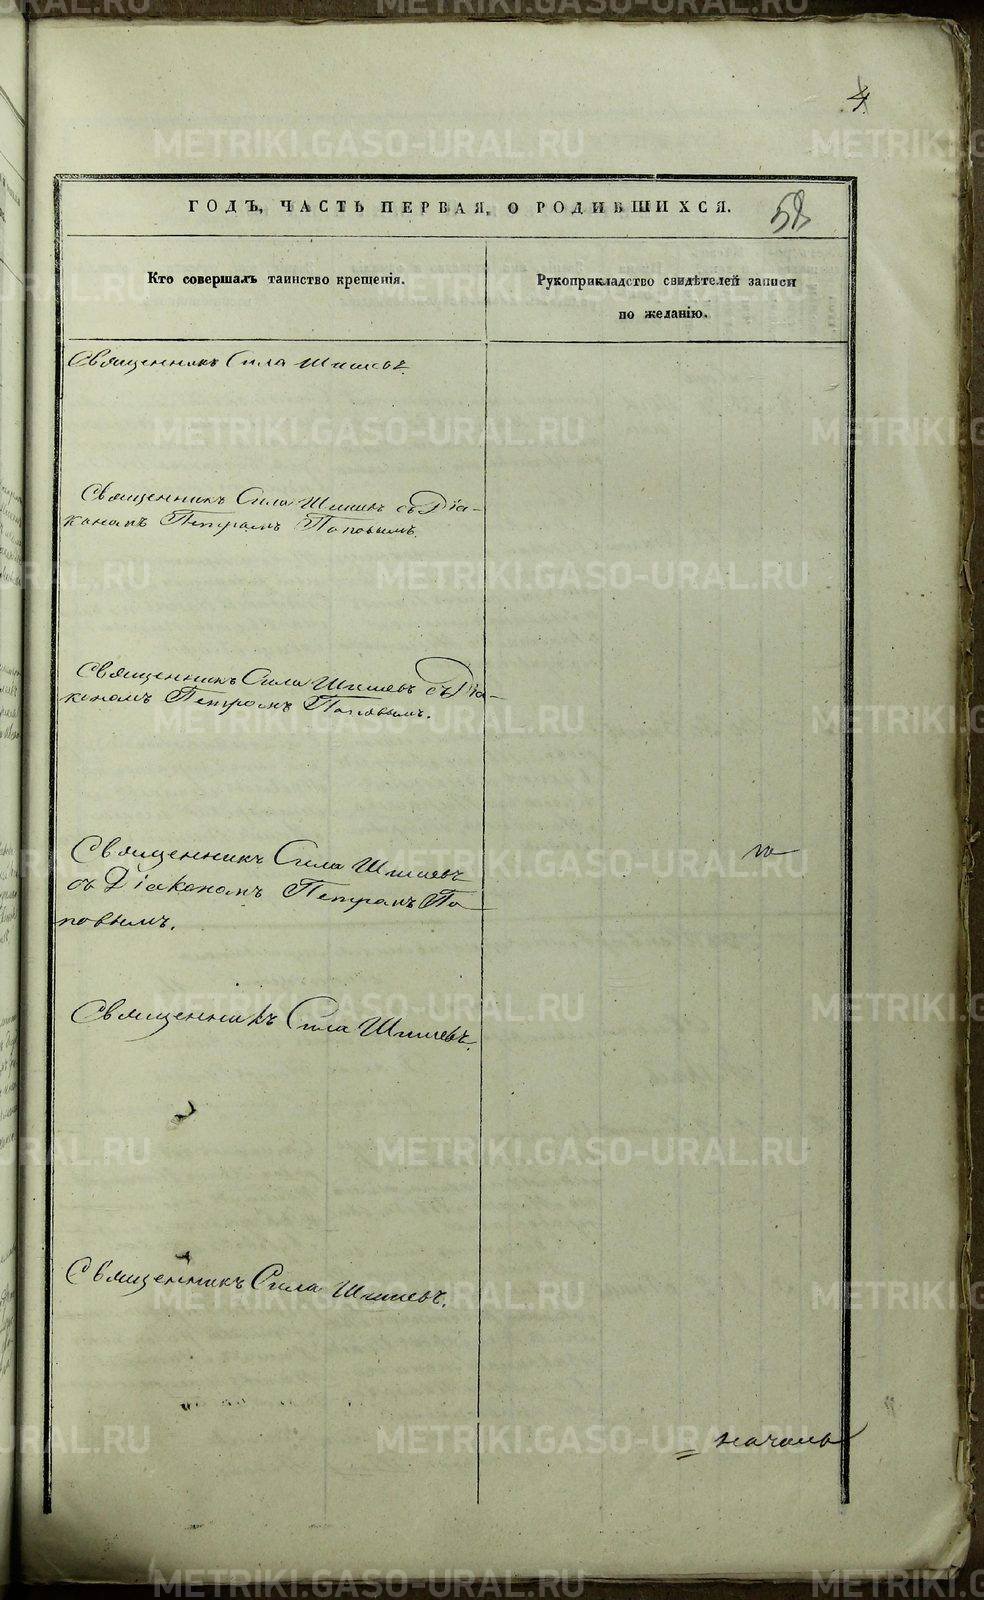 4
ГОДЪ, ЧАСТЬ ПЕРВАЯ, О РОДИВШИХСЯ.
58
Кто совершалъ таинство крещенія.
Рукоприкладство свидѣтелей записи
по желанію.
Священникъ Сила Шишевъ.
Священникъ Сила Шишевъ съ Діа-
кономъ Петромъ Поповымъ.
Священникъ Сила Шишевъ съ Діа-
кономъ Петромъ Поповымъ.
Священникъ Сила Шишевъ
съ Діакономъ Петромъ По-
повымъ.
Священникъ Сила Шишевъ.
Священникъ Сила Шишевъ.
METRIKI.GASO-URAL.RU